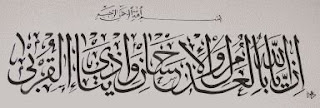 بسم الله الرحمن الرحيم
إن الله يأمر بالعدل والإحسان وإيتاء ذي القربى